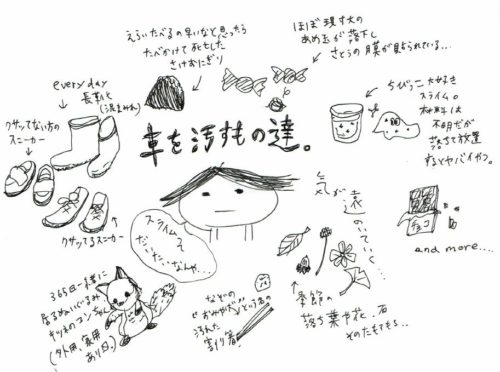 えらいたべるの早いなと思ったら
たべかけて死亡した
さけおにぎり
ほぼ現寸大の
あめ玉が落下し
さとうの膜が見られている...
every day
長靴
(泥まみれ)
クサッてない方の
スニーカー
車を汚すもの達。
ちびっこ大好き
スライム。
材料は
不明だが
さまざまで放置
するとヤバイやつ。
気が
遠のいていく...
チョコ
and more....
クサッてるスニーカー
スライムて
だいたいなんや...
365日一緒に
居るぬいぐるみ
キツネのコンちゃん
(外用、家用
あり〼。)
などの
"おみやげ"という名の
汚れた
割り箸
季節の
落ち葉や花、石
そのたもろもろ...